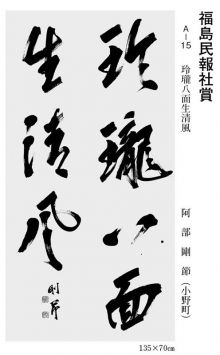 福島民報社賞
A-15 玲瓏八面生清風
阿部剛節(小野町)
玲瓏八面
生清風
剛節
135×70cm